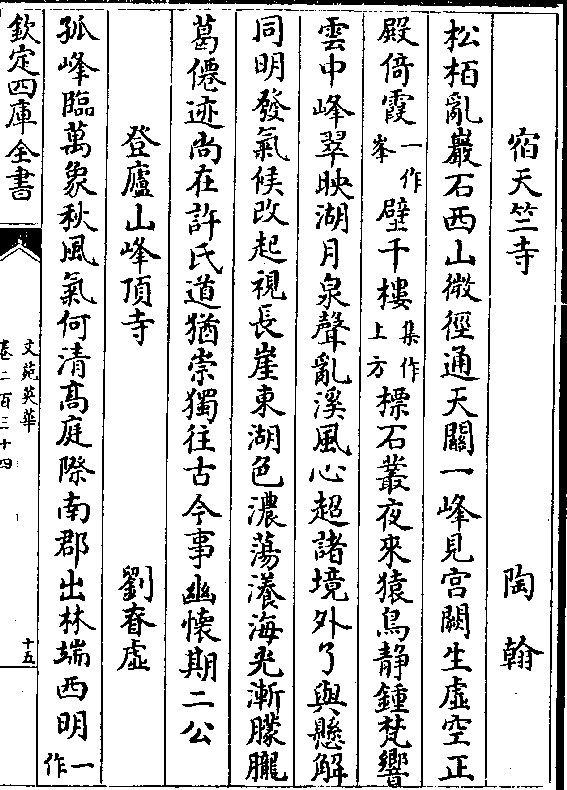 宿天竺寺　陶翰
松栢亂巖石西山微徑通天闢一峰見宫闕生虚空正
殿倚霞一作峯壁千樓集作上方標石叢夜來猿鳥静鍾梵響
雲中峰翠映湖月泉聲亂溪風心超諸境外了與懸解
同明發氣候改起視長崖東湖色濃蕩瀁海光漸朦朧
葛僊迹尚在許氏道猶崇獨往古今事幽懐期二公
登廬山峰頂寺　劉眘虚
孤峰臨萬象秋風氣何清髙庭際南郡出林端西明一作
欽定四庫全書
文苑英華
卷二百三十四
十五